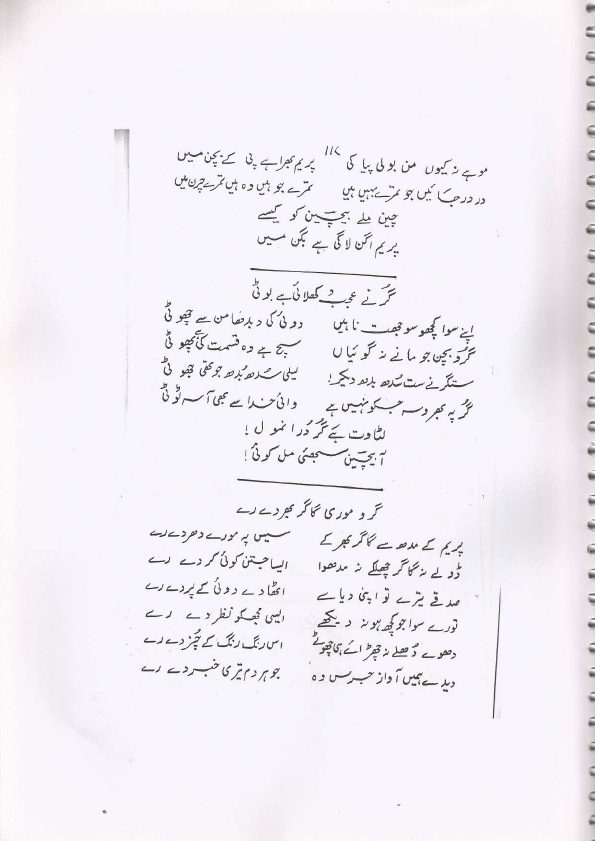 موہے نہ کیوں من بولی پیا کی ॥ پریم بھرا ہے پی کے بچن میں
در در جائیں جو تمرے نہیں ہیں تمرے جو ہیں وہ ہیں تمرے چرن میں
چین ملے بیچین کو کیسے
پریم اگن لاگی ہے بگن میں
گرُ نے عجب کھلائی ہے بوٹی
اپنے سوا کچھو سوجھت ناہیں دوئی کی دبدھا من سے چھوٹی
گرو بچن جو مانے نہ گوئیاں سچ ہے وہ قسمت کی پھوٹی
ستگر نے ست سُدھ بدھ دیکر! لیلی سُدھ بُدھ جو تھی جھوٹی
گُر پہ بھروسہ جسکو نہیں ہے وائی خدا سے بھی آسہ ٹوٹی
لٹاوت ہے گُر دُر انمول!
آ بیچین سمجھئی مل کوئی!
گرو موری گاگر بھر دے رے
پریم کے مدھ سے گاگر بھر کے سیس پہ مورے دھر دے رے
ڈولے نہ گاگر چھلکے نہ مدھوا ایسا جتن کوئی کر دے رے
صدقے تیرے تو اپنی دیا سے اٹھا دے دوئی کے پردے رے
تورے سوا جو کچھ ہو نہ دیکھے ایسی مجھکو نظر دے رے
دھوے دُھلے نہ چھڑائے ہی چھوٹے اس رنگ رنگ کے چُنر دے رے
دیدے ہمیں آواز جرس وہ جو ہر دم تیری خبر دے رے